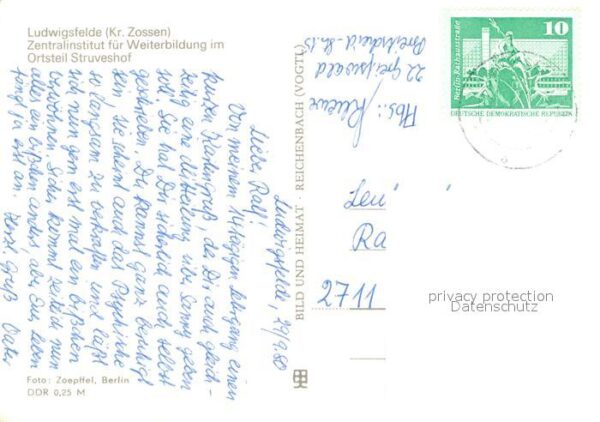 Ludwigsfelde (Kr. Zossen)
Zentralinstitut für Weiterbildung im
Ortsteil Struveshof
Ludwigsfelde, 20/9.80
Lieber Ralf!
Von meinem 14tägigen Lehrgang einen
Kartengruß, der Dir auch gleich-
zeitig eine Mitteilung über Sunny geben
soll. Sie hat Dir sicherlich auch selbst
geschrieben. Du kannst ganz beruhigt
sein. Sie scheint auch das Psychische
so langsam zu verkraften und läßt
sich nun gern erst mal ein bißchen
verwöhnen. Sicher kommt zeitlich nun
alles ein bißchen anders, aber Euer Leben
fängt ja erst an. Herzl. Gruß Vater
Foto: Zoepffel, Berlin
DDR 0,25 M
BILD UND HEIMAT · REICHENBACH (VOGTL)
Abs.:
22 Greifswald
Berlin-Rathausstraße
10
DEUTSCHE DEMOKRATISCHE REPUBLIK
Ra
2711
privacy protection
Datenschutz